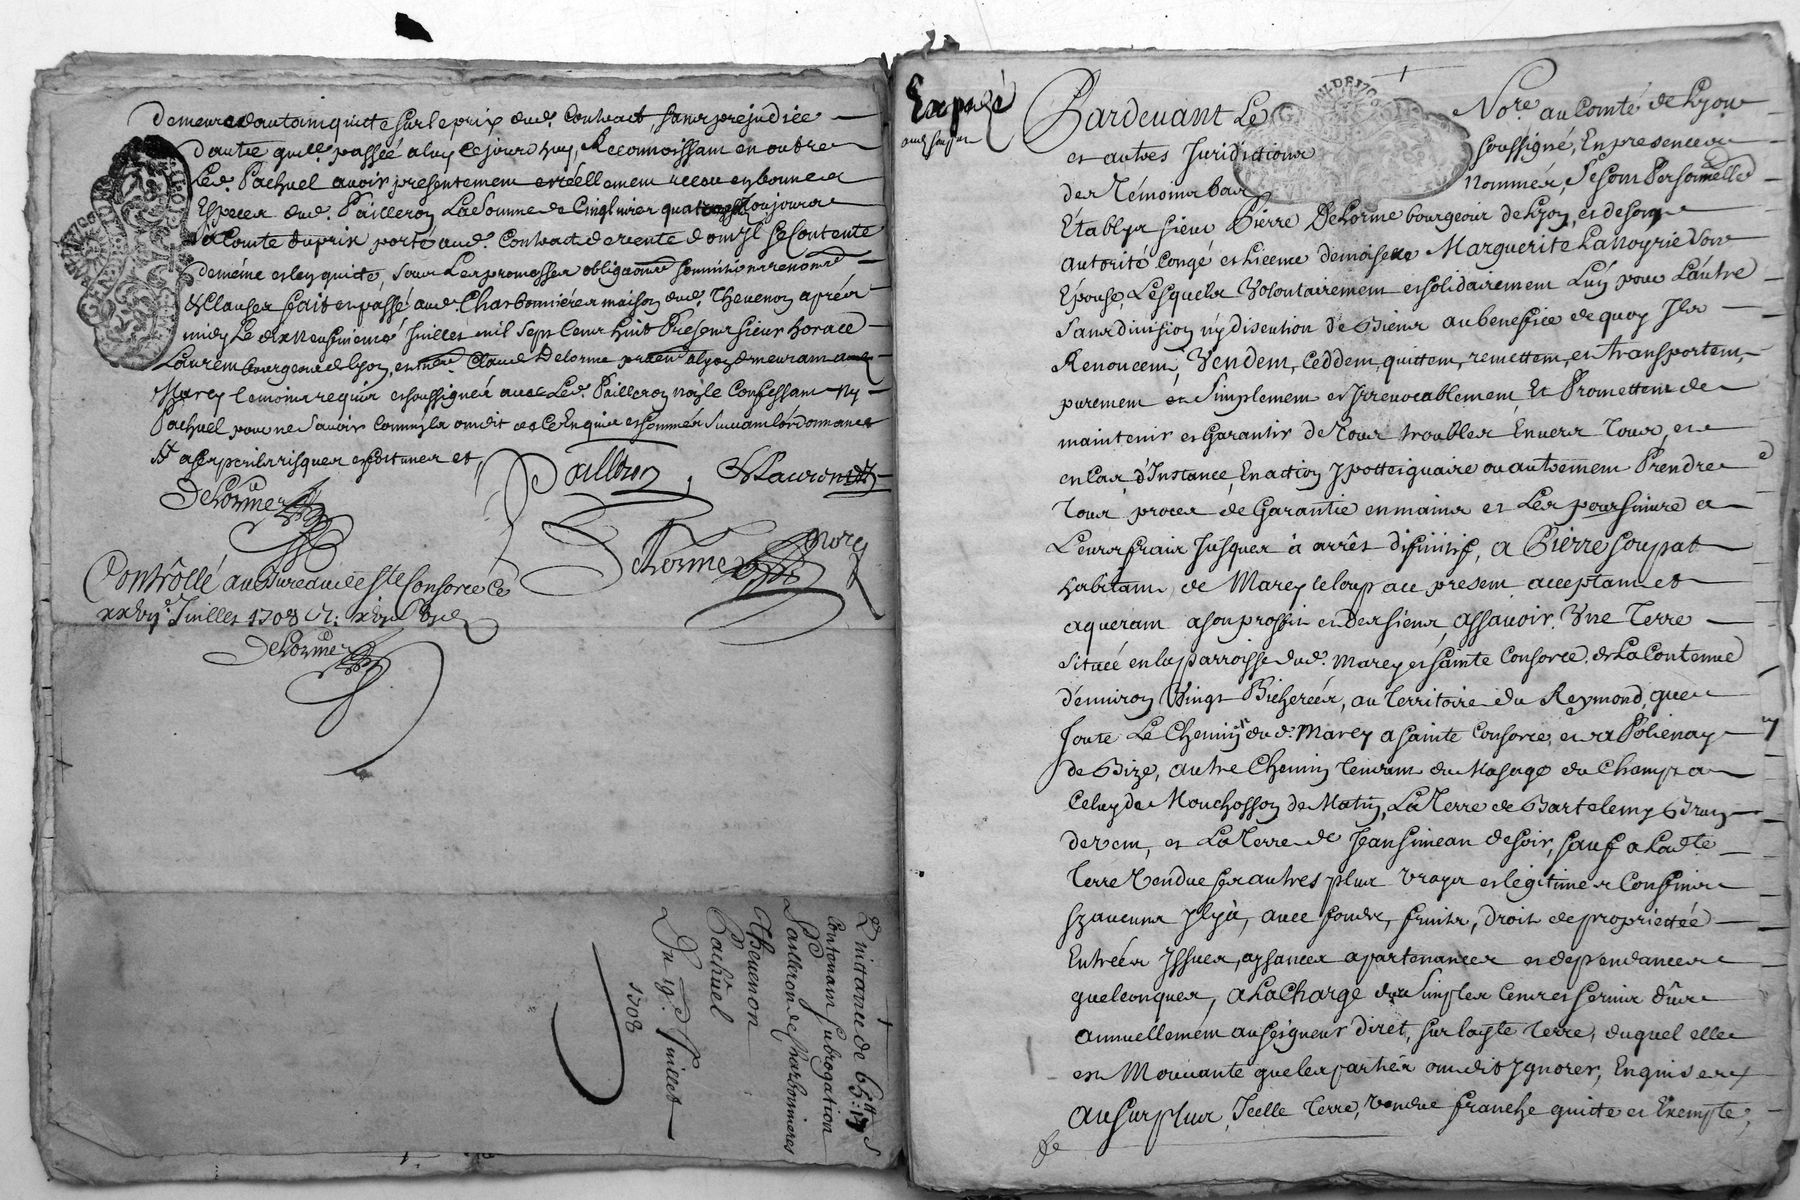 Demeure dautam quitte sur le prix dud. Contract, sans prejudice
dautre quil passée a luy Cejourdhuy, Reconnoissam en outre
Led. Pachuel avoir presentement et réellement receu en bonnes
Especes dud. Pailleron La Somme de Cinq livres toujours
a Comte du prix porté aud. Contract de vente donq Il se Contente
de méme et len quitte, sous Les promesses obligaons soumissions renons
& Clauses fait et passé aud. Charbonnières maison dud. Thevenon aprés
midy Le dixneufvieme Juillet mil sept Cens huit Presens sieur horace
Laurem bourgeois de lyon, et Claude Delorme demeuram
Marcy temoins requis et soussignés avec Led. Pailleron non le Confessam Ny
Pachuel pour ne Savoir Comm'ils om dit de Ce Enquis et sommés suivam lordonnance
a ses perils risques et fortunes et
Pailleron
HLaurent
Delorme
Delorme
Marcy
Contrôllé au Bureau de Ste Consorce Ce
Juillet 1708
Delorme
Quittance de
Contenam Subrogation
Pailleron de Charbonnieres
Thevenon
Pachuel
Du 19e Juillet
1708
GEN. DE LYON
Expedié
Pardevant Le Nore. au Comté de Lyon
et autres Juridictions soussigné, En presence
des Témoins bas nommés, Se som Personnelle
Etablys sieur Pierre Delorme bourgeois de Lyon, et de son
autorité Congé et Licence demoiselle Marguerite Lanoyrie son
Epouse, Lesquels Volontairement et solidairement Lun pour L'autre
Sans division ny discution de Biens au benefice de quoy Ils
Renoncem, Vendem, Ceddem, quittem, remettem, et transportem,
purement et Simplement et Irrevocablement, Et Promettem de
maintenir et Garantir de Tous troubles Envers Tous, et
en Cas d'Instance, En action Ypotteiquaire ou autrement Prendre
Tous proces de Garantie en mains et Les poursuivre a
Leurs frais Jusques à arrêt difinitif, a Pierre Soupat
habitam de Marcy le loup ace presem acceptam et
aqueram a son proffit et des siens, assavoir. Une Terre
Située en la parroisse dud. Marcy et Sainte Consorce de La Contenue
d'environ Vingt Bicherées, au Territoire du Reymond, que
Joute Le Chemin du d. Marcy a Sainte Consorce, et a Polienay
de Bize, autre Chemin Tendam du Masage du Champt a
Celuy de Mouchosson de Matin, La Terre de Bartelemy Brun
de vem, et La Terre de Jean Simean de soir, sauf a Ladte
Terre Vendue ses autres plus vrays et legitimes Confins
sy aucuns Il y à, avec fonds, fruits, droit de propriettée
Entrées Issues, aysances apartenances et dependances
quelconques, a La Charge du Simples Cens et Servis dûs
annuellement au seigneur diret, sur layte Terre, duquel elle
est Mouvante que les parties om dit Ignorer, Enquises
Au surplus, Icelle Terre, Vendue franche quitte et Exempte,
de